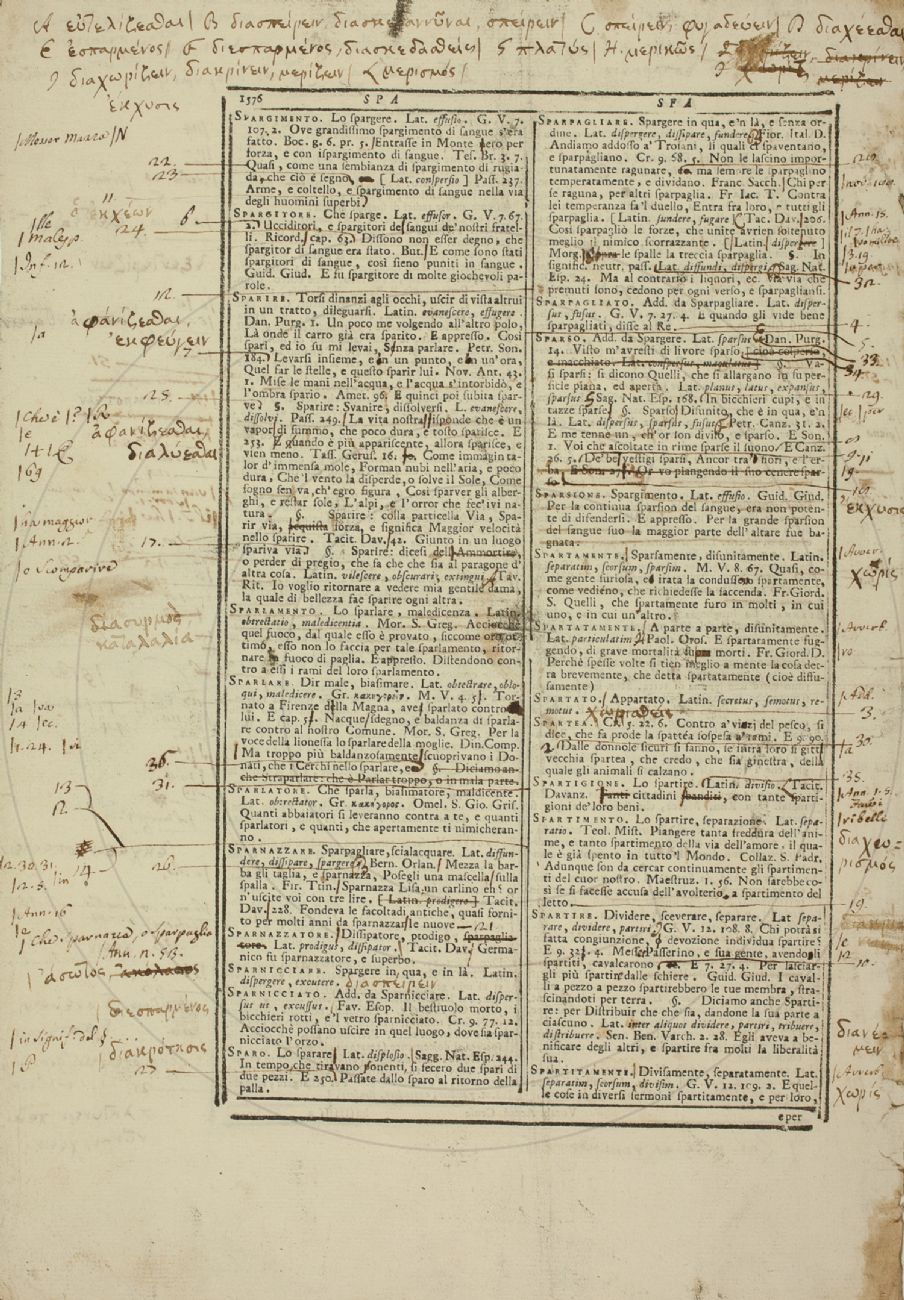 A εὐτελίζεσθαι B διασπείρειν, διασκεδαννῦναι, σπείρειν C σπείρειν, φυγαδεύειν D διαχέεσθαι
E ἐσπαρμένος F διεσπαρμένος, διασκεδασθείς G πλατύς H μερικῶς
διαχωρίζειν, διακρίνειν, μερίζειν L μερισμός
ἔκχυσις
1576 SPA
SPARGIMENTO. Lo spargere. Lat. effusio. G. V. 7.
107. 2. Ove grandissimo spargimento di sangue s'era
fatto. Bocc. g. 6. pr. 5. Entrasse in Monte Nero per
forza, e con ispargimento di sangue. Tes. Br. 3. 7.
Quasi, come una sembianza di spargimento di rugia-
da, che ciò è segno, [Lat. conspersio] Pass. 237.
Arme, e coltello, e spargimento di sangue nella vita
degli huomini superbi.
SPARGITORE. Che sparge. Lat. effusor. G. V. 7. 67.
2. Ucciditori, e spargitori de' sangui de' nostri fratel-
li. Ricord. cap. 63. Dissono non esser degno, che
spargitor di sangue era stato. But. E come sono stati
spargitori di sangue, così sieno puniti in sangue.
Guid. Giud. E fu spargitore di molte giocheroli pa-
role.
SPARIRE. Torsi dinanzi agli occhi, uscir di vista altrui
in un tratto, dileguarsi. Latin. evanescere, effugere.
Dan. Purg. 1. Un poco me volgendo all'altro polo,
Là onde il carro già era sparito. E appresso. Così
sparì, ed io su mi levai, Senza parlare. Petr. Son.
184. Levarsi insieme, e'n un punto, e'n un'ora,
Quel far le stelle, e questo sparir lui. Nov. Ant. 43.
1. Mise le mani nell'acqua, e l'acqua s'intorbidò, e
l'ombra spario. Amet. 96. E quinci poi subita spar-
ve. §. Sparire: Svanire, dissolversi. L. evanescere,
dissolvi. Pass. 249. La vita nostra risponde che è un
vapor di fummo, che poco dura, e tosto sparisce. E
253. E quando è più appariscente, allora sparisce, e
vien meno. Tass. Gerus. 16. Come immagin ta-
lor d'immensa mole, Forman' nubi nell'aria, e poco
dura, Che 'l vento la disperde, o solve il Sole, Come
sogno sen va, ch'egro figura, Così sparver gli alber-
ghi, e restar sole, L'alpi, e l'orror che fec'ivi na-
tura. §. Sparire: colla particella Via, Spa-
rir via, forza, e significa Maggior velocità
nello sparire. Tacit. Dav. 42. Giunto in un luogo
spariva via. §. Sparire: dicesi dell'Ammortire,
o perder di pregio, che fa che che sia al paragone d'
altra cosa. Latin. vilescere, obscurari, extingui. Tav.
Rit. Io voglio ritornare a vedere mia gentile dama,
la quale di bellezza fae sparire ogni altra.
SPARLAMENTO. Lo sparlare, maledicenza. Latin.
obtrectatio, maledicentia. Mor. S. Greg. Acciocchè
quel fuoco, dal quale esso è provato, siccome oro ot-
timo, esso non lo faccia per tale sparlamento, ritor-
nare in fuoco di paglia. E appresso. Distendono con-
tro a essi i rami del loro sparlamento.
SPARLARE. Dir male, biasimare. Lat. obtrectare, oblo-
qui, maledicere. Gr. κακηγορεῖν. M. V. 4. 51. Tor-
nato a Firenze della Magna, avea sparlato contro a
lui. E cap. 51. Nacque sdegno, e baldanza di sparla-
re contro al nostro Comune. Mor. S. Greg. Per la
voce della lionessa lo sparlare della moglie. Din. Comp.
Ma troppo più baldanzosamente scuoprivano i Do-
nati, che i Cerchi nello sparlare, e §. Diciamo an-
che Straparlare: che è Parlar troppo, o in mala parte.
SPARLATORE. Che sparla, biasimatore, maldicente.
Lat. obtrectator. Gr. κακήγορος. Omel. S. Gio. Gris.
Quanti abbaiatori si leveranno contra a te, e quanti
sparlatori, e quanti, che apertamente ti nimicheran-
no.
SPARNAZZARE. Sparpagliare, scialacquare. Lat. diffun-
dere, dissipare, spargere. Bern. Orlan. Mezza la bar-
ba gli taglia, e sparnazza, Posegli una mascella sulla
spalla. Fir. Trin. Sparnazza Lisa un carlino eh? or
n'uscite voi con tre lire. [Latin. prodigere] Tacit.
Dav. 228. Fondeva le facoltadi antiche, quasi forni-
to per molti anni da sparnazzar le nuove.
SPARNAZZATORE. Dissipatore, prodigo, sparpaglia-
tore. Lat. prodigus, dissipator. Tacit. Dav. Germa-
nico fu sparnazzatore, e superbo.
SPARNICCIARE. Spargere in qua, e in là. Latin.
dispergere, excutere. διασπείρειν
SPARNICCIATO. Add. da Sparnicciare. Lat. disper-
sus, excussus. Fav. Esop. Il bestiuolo morto, i
bicchieri rotti, e 'l vetro sparnicciato. Cr. 9. 77. 12.
Acciocchè possano uscire in quel luogo, dove sia spar-
nicciato l'orzo.
SPARO. Lo sparare. Lat. displosio. Sagg. Nat. Esp. 244.
In tempo, che tiravano ponenti, si fecero due spari di
due pezzi. E 250. Passate dallo sparo al ritorno della
palla.
SPA
SPARPAGLIARE. Spargere in qua, e'n là, e senza or-
dine. Lat. dispergere, dissipare, fundere. Fior. Ital. D.
Andiamo addosso a' Troiani, li quali e' spaventano,
e sparpagliano. Cr. 9. 68. 5. Non le lascino impor-
tunatamente ragunare, ma sempre le sparpaglino
temperatamente, e dividano. Franc. Sacch. Chi per
se raguna, per altri sparpaglia. Fr. Iac. T. Contra
lei temperanza fa 'l duello, Entra fra loro, e tutti gli
sparpaglia. [Latin. fundere, fugare] Tac. Dav. 206.
Così sparpagliò le forze, che unite avrien sostenuto
meglio il nimico scorrazzante. [Latin. dispergere]
Morg. Sopra le spalle la treccia sparpaglia. §. In
signific. neutr. pass. Lat. diffundi, dispergi. Sag. Nat.
Esp. 24. Ma al contrario i liquori, ec. via via che
premuti sono, cedono per ogni verso, e sparpagliansi.
SPARPAGLIATO. Add. da Sparpagliare. Lat. disper-
sus, fusus. G. V. 7. 27. 4. E quando gli vide bene
sparpagliati, disse al Re.
SPARSO. Add. da Spargere. Lat. sparsus. Dan. Purg.
14. Visto m'avresti di livore sparso, cioè cosperso,
e macchiato. Lat. conspersus, maculatus. §. Va-
si sparsi: si dicono Quelli, che si allargano in super-
ficie piana, ed aperta. Lat. planus, latus, expansus,
sparsus. Sag. Nat. Esp. 168. In bicchieri cupi, e in
tazze sparse. §. Sparso: Disunito, che è in qua, e'n
là. Lat. dispersus, sparsus, fusus. Petr. Canz. 31. 2.
E me tenne un, ch'or son diviso, e sparso. E Son.
1. Voi che ascoltate in rime sparse il suono. E Canz.
26. 5. De' be' vestigi sparsi, Ancor tra' fiori, e l'er-
ba, E Son. 27. Or vo piangendo il suo cenere spar-
so.
SPARSIONE. Spargimento. Lat. effusio. Guid. Giud.
Per la continua sparsion del sangue, era non poten-
te di difendersi. E appresso. Per la grande sparsion
del sangue suo la maggior parte dell'altare fue ba-
gnata.
SPARTAMENTE. Sparsamente, disunitamente. Latin.
separatim, seorsum, sparsim. M. V. 8. 67. Quasi, co-
me gente furiosa, e irata la condussono spartamente,
come vediéno, che richiedesse la faccenda. Fr. Giord.
S. Quelli, che spartamente furo in molti, in cui
uno, e in cui un'altro.
SPARTATAMENTE. A parte a parte, disunitamente.
Lat. particulatim. Paol. Oros. E spartatamente fug-
gendo, di grave mortalità morti. Fr. Giord. D.
Perchè spesse volte si tien meglio a mente la cosa det-
ta brevemente, che detta spartatamente (cioè diffu-
samente)
SPARTATO. Appartato. Latin. secretus, semotus, re-
motus. χωρισθείς
SPARTEA. Cr. 5. 22. 6. Contro a' vizj del pesco, si
dice, che fa prode la spartèa sospesa a' rami. E 9. 90.
2. Dalle donnole sicuri si fanno, se intra loro si gitti
vecchia spartea, che credo, che sia ginestra, della
quale gli animali si calzano.
SPARTIGIONE. Lo spartire. Latin. divisio. Tacit.
Davanz. cittadini sbanditi, con tante sparti-
gioni de' loro beni.
SPARTIMENTO. Lo spartire, separazione. Lat. sepa-
ratio. Teol. Mist. Piangere tanta freddura dell'ani-
me, e tanto spartimento della via dell'amore, il qua-
le è già spento in tutto 'l Mondo. Collaz. S. Padr.
Adunque son da cercar continuamente gli spartimen-
ti del cuor nostro. Maestruz. 1. 56. Non sarebbe co-
sì se si facesse accusa dell'avolterio, a spartimento del
letto.
SPARTIRE. Dividere, sceverare, separare. Lat. sepa-
rare, dividere, partiri. G. V. 12. 108. 8. Chi potrà sì
fatta congiunzione, e devozione individua spartire?
E 9. 322. 4. Messer Passerino, e sua gente, avendogli
spartiti, cavalcarono E 7. 27. 4. Per lasciar-
gli più spartire dalle schiere. Guid. Giud. I caval-
li a pezzo a pezzo spartirebbero le tue membra, stra-
scinandoti per terra. §. Diciamo anche Sparti-
re: per Distribuir che che sia, dandone la sua parte a
ciascuno. Lat. inter aliquos dividere, partiri, tribuere,
distribuere. Sen. Ben. Varch. 2. 28. Egli aveva a be-
nificare degli altri, e spartire fra molti la liberalità
sua.
SPARTITAMENTE. Divisamente, separatamente. Lat.
separatim, seorsum, divisim. G. V. 12. 109. 2. E quel-
le cose in diversi sermoni spartitamente, e per loro,
e per
22.
23.
ἐκχέων
24.
6
12.
ἀφανίζεσθαι
ἐκφεύγειν
7
25.
ἀφανίζεσθαι
διαλύεσθαι
17.
e Scomparire
διασυρμὸς
καταλαλία
36.
31.
13
12.
14.
26.
che Sparnazza, o Sparpaglia
ἄσωτος
διεσπαρμένος
διακρότησις
27
32
4.
5.
33.
34.
29.
8
9.
10.
ἔκχυσις
χωρίς
3.
30.
35.
ribelli
διαχωρισμός
19.
διανέμειν
χωρίς